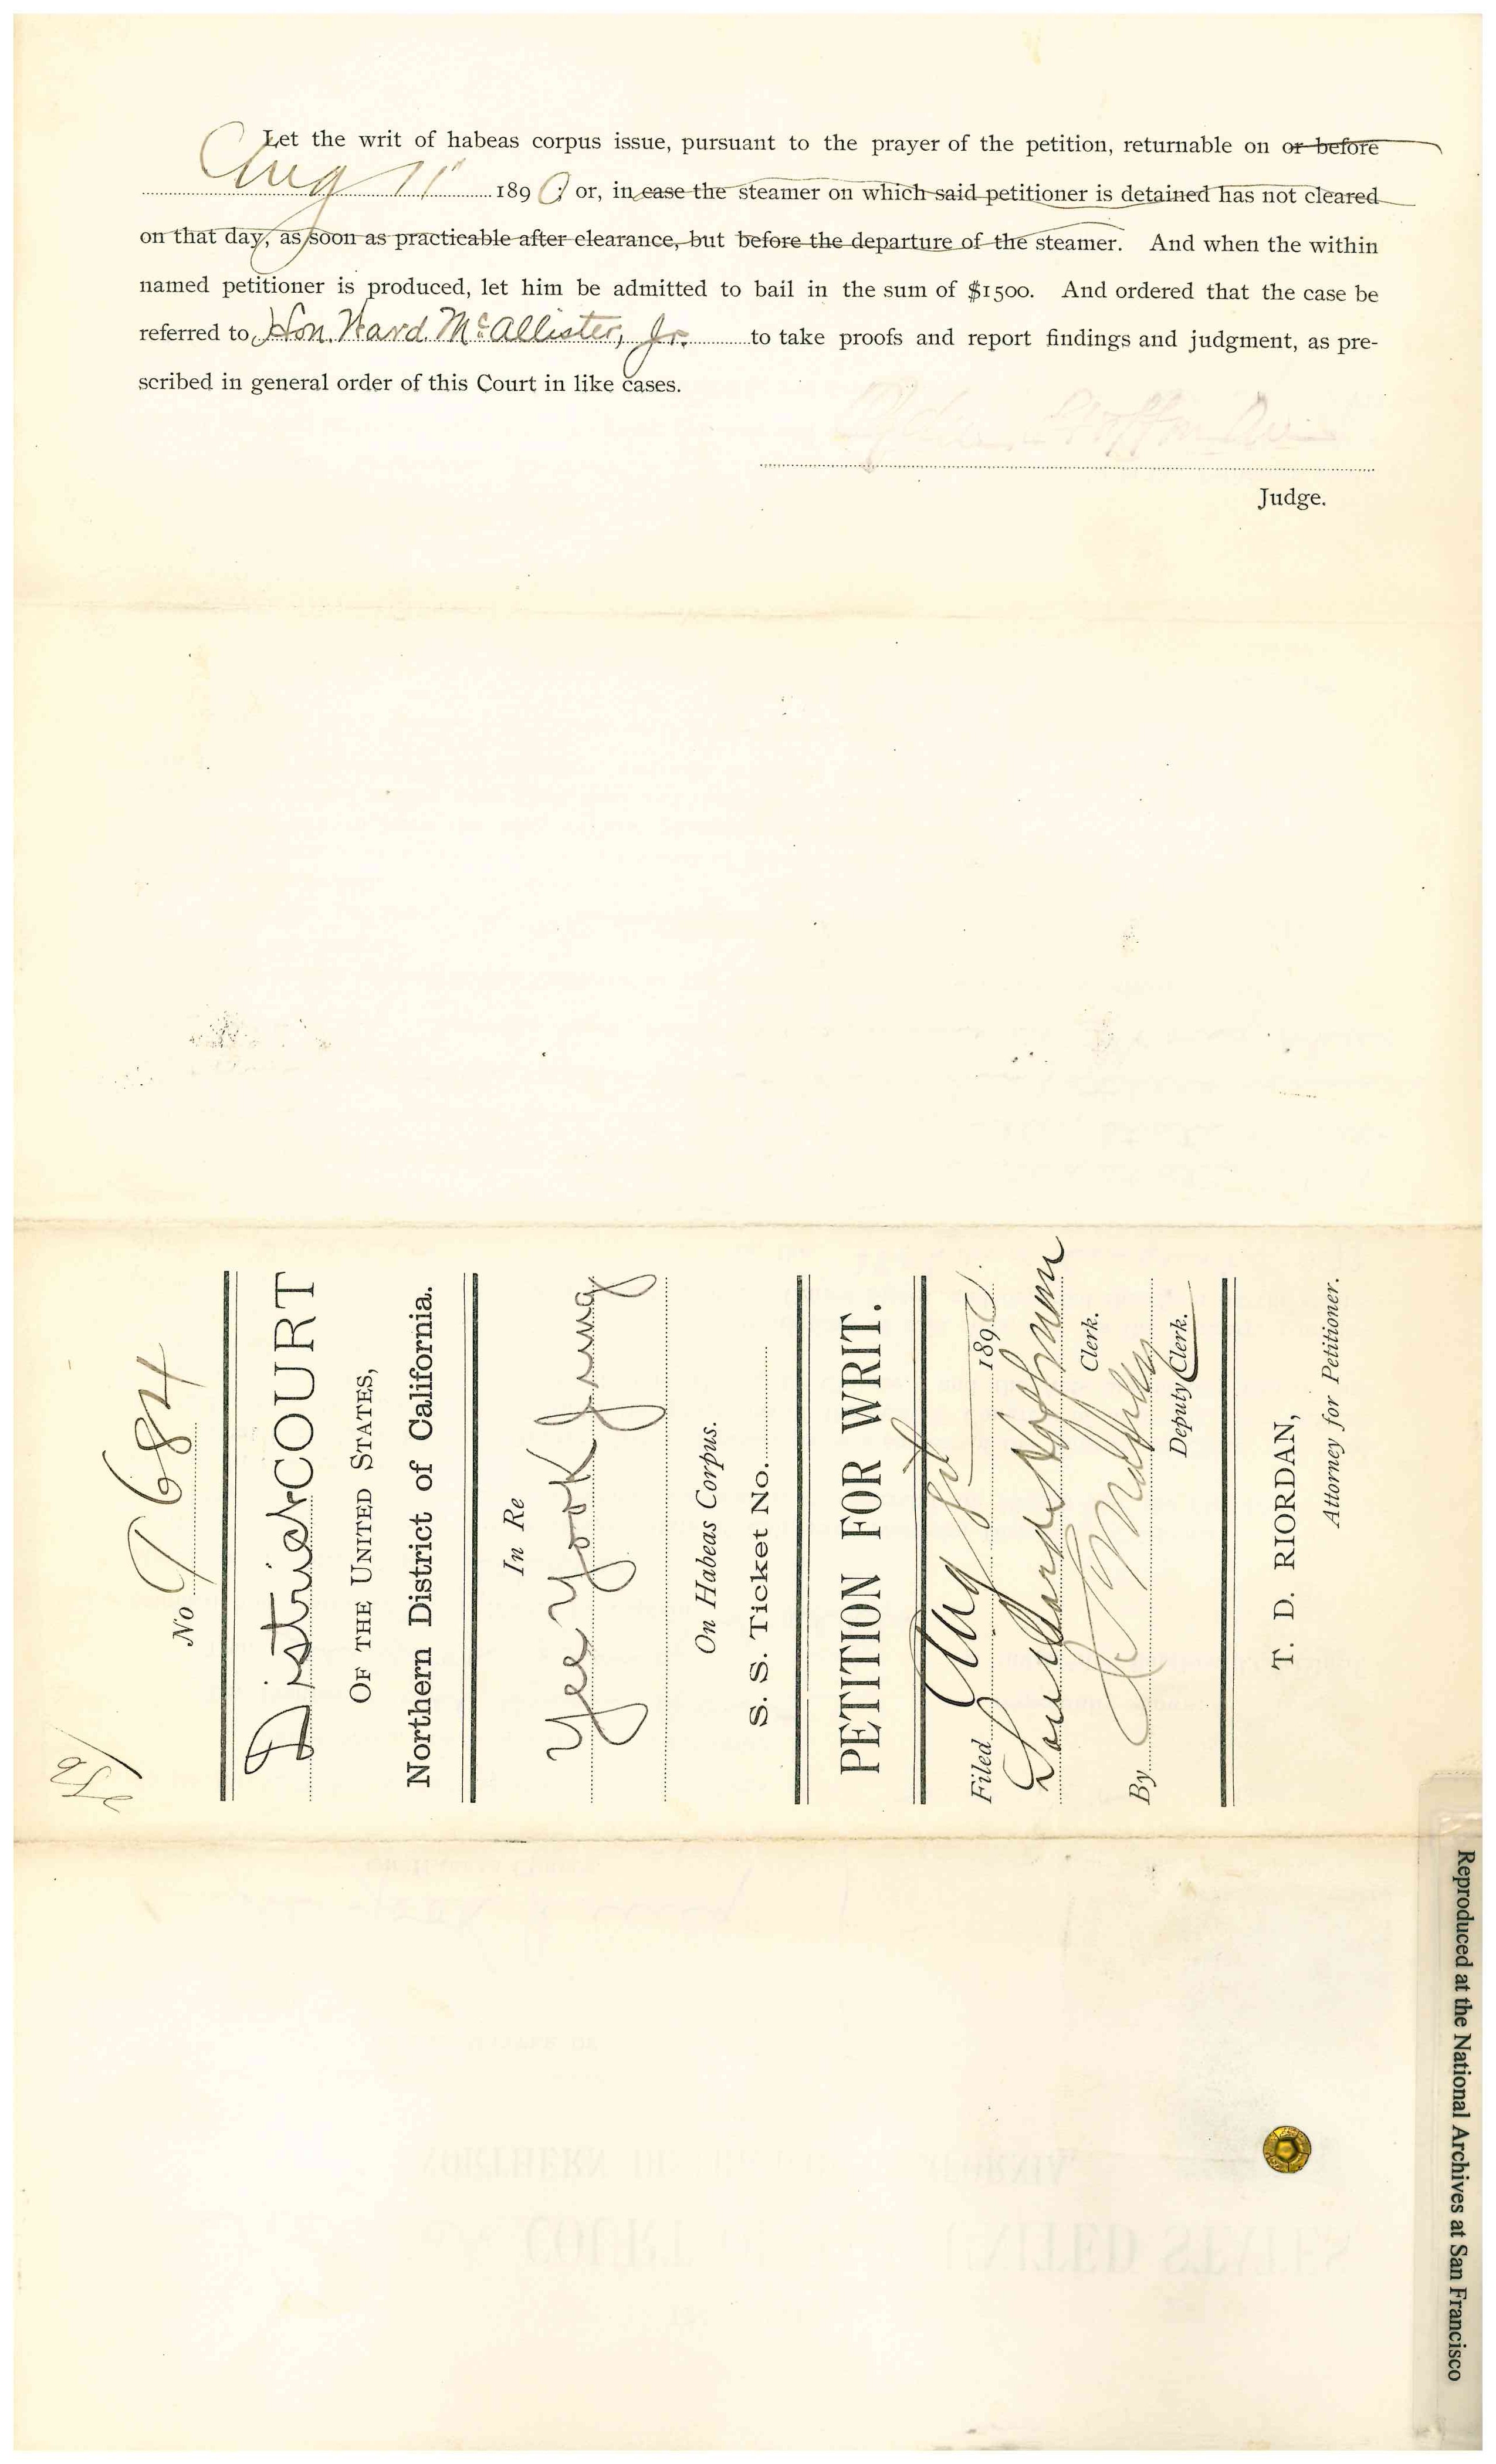 Let the writ of habeas corpus issue, pursuant to the prayer of the petition, returnable on or before
Aug 11 1890; or, in case the steamer on which said petitioner is detained has not cleared
on that day, as soon as practicable after clearance, but before the departure of the steamer. And when the within
named petitioner is produced, let him be admitted to bail in the sum of $1500. And ordered that the case be
referred to Hon. Ward McAllister, Jr. to take proofs and report findings and judgment, as pre-
scribed in general order of this Court in like cases.
Ogden Hoffman
Judge.
No 9684
District COURT
OF THE UNITED STATES,
Northern District of California.
In Re
Yee Yook Jung
On Habeas Corpus.
S. S. Ticket No.
PETITION FOR WRIT.
Filed Aug 1890.
Southard Hoffman
Clerk.
By
Deputy Clerk.
T. D. RIORDAN,
Attorney for Petitioner.
Reproduced at the National Archives at San Francisco